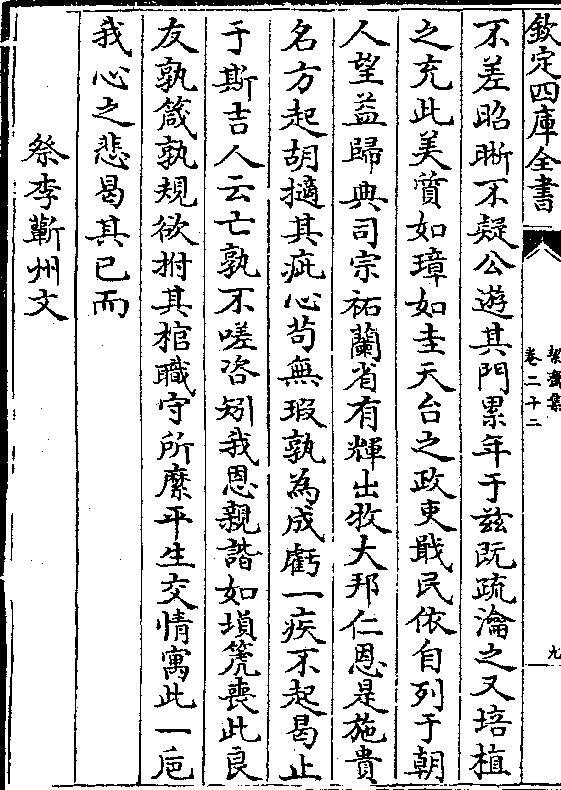 欽定四庫全書
絜齋集
卷二十二
九
不差昭晰不疑公遊其門累年于兹既疏瀹之又培植
之充此美質如璋如圭天台之政吏戢民依自列于朝
人望益歸典司宗祏蘭省有輝出牧大邦仁恩是施貴
名方起胡擿其疵心苟無瑕孰為成虧一疾不起曷止
于斯吉人云亡孰不嗟咨矧我恩親諧如塤箎喪此良
友孰箴孰規欲拊其棺職守所縻平生交情寓此一巵
我心之悲曷其已而
祭李蘄州文